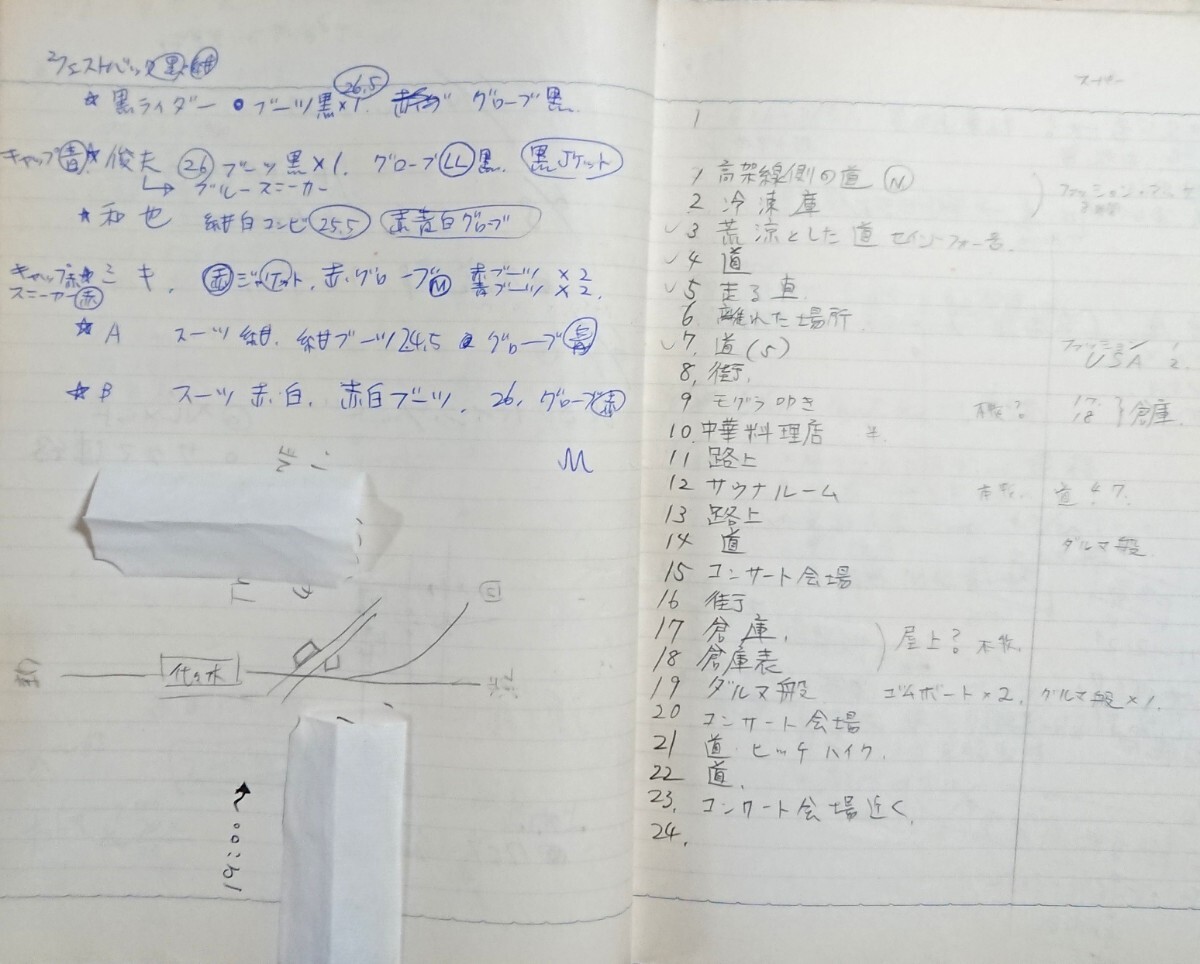 ウェストバッグ 黒 紺
☆ 黒ライダー ・ ブーツ黒×1. 26.5 グローブ 黒.
キャップ青 ☆ 俊夫 26 ブーツ黒×1. グローブ LL 黒. 黒Jケット
↳ ブルースニーカー
☆ 和也 紺白コンビ 25.5 赤青白グローブ
キャップ赤 ☆ ミキ. 赤 ジャケット, 赤グローブ M 赤ブーツ ×2
スニーカー赤 青ブーツ ×2.
☆ A スーツ 紺. 紺ブーツ24.5 グローブ 青
☆ B スーツ 赤.白. 赤白ブーツ. 26. グローブ 赤
M
代々木
15:00~
スーパー
1
1 高架線側の道 N
2. 冷凍庫
✓3 荒涼とした道 セイントフォー
✓4 道
✓5 走る車.
6 離れた場所.
✓7. 道(S)
8, 街.
ファッション 1
USA 2.
9 モグラ叩き
17.
18 } 倉庫.
10. 中華料理店
11 路上
12 サウナルーム
道 4.7.
13 路上
14 道
ダルマ船.
15 コンサート会場
16 街
17 倉庫.
18 倉庫表
屋上?
19 ダルマ船 ゴムボート×2, ダルマ船×1.
20 コンサート会場
21 道. ヒッチハイク.
22 道.
23. コンサート会場近く.
24.